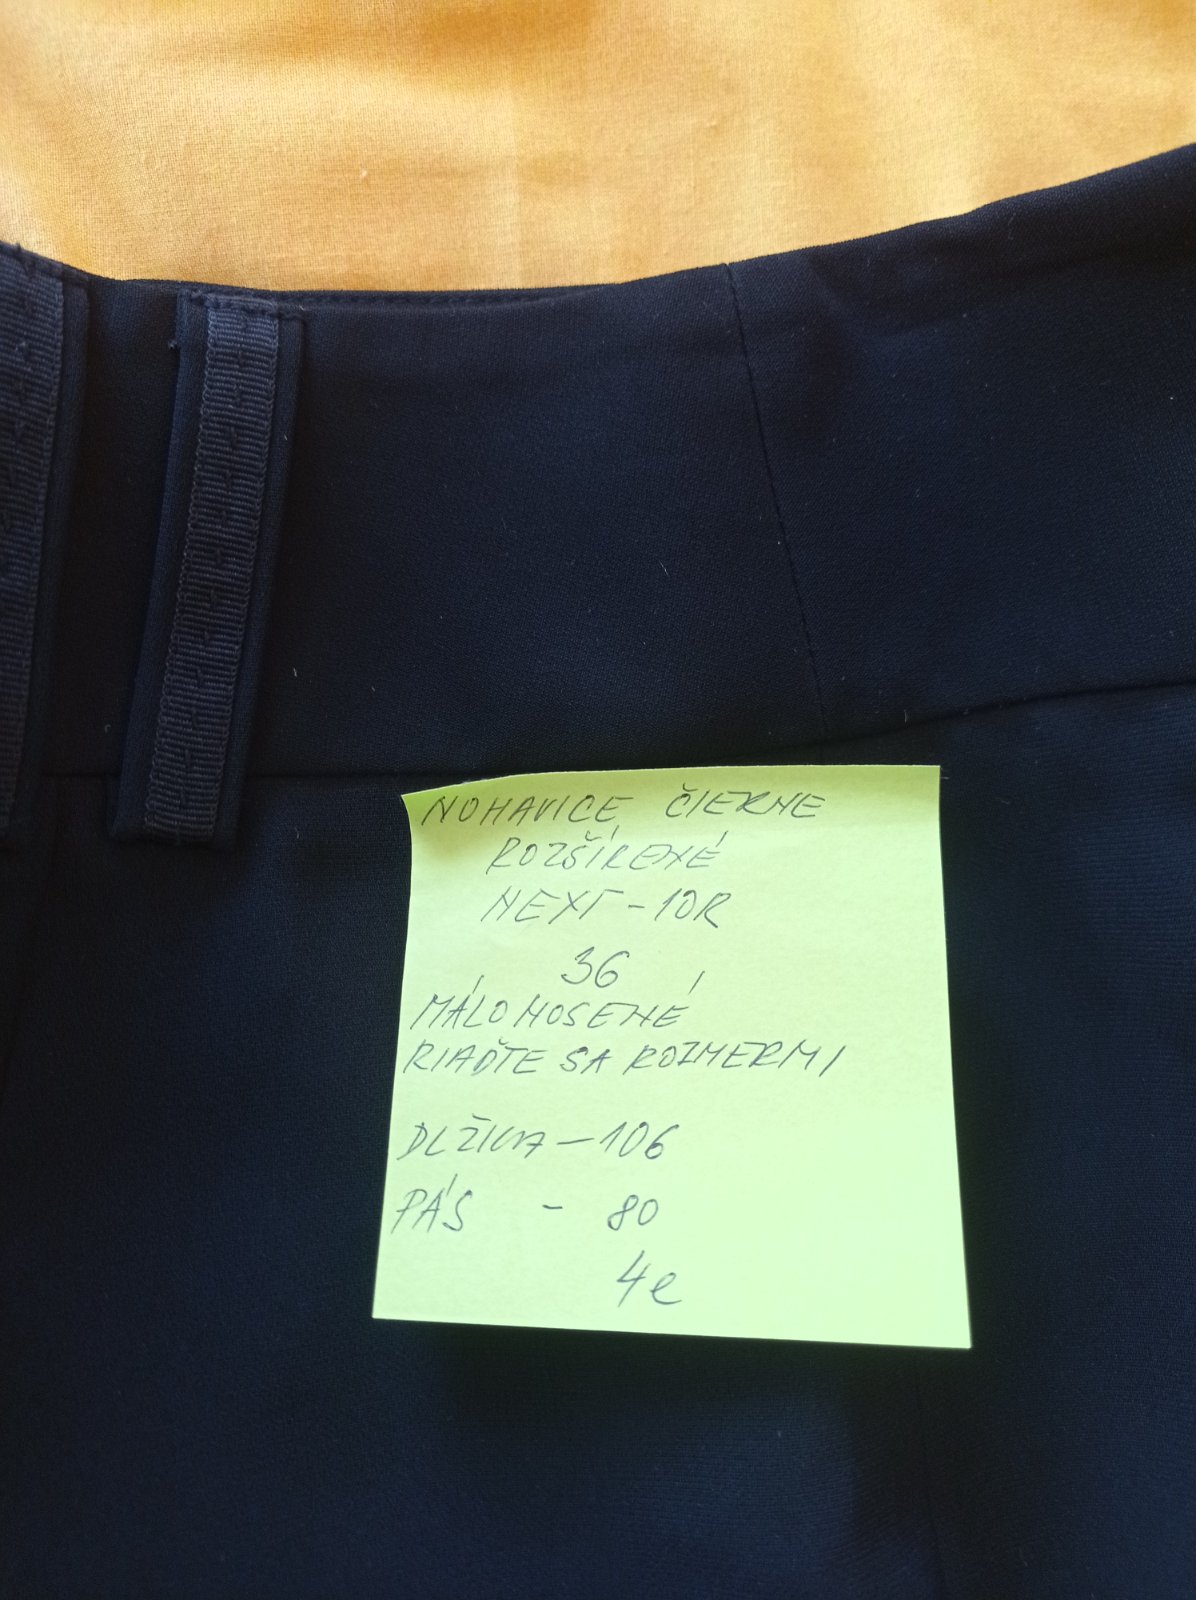 NOHAVICE ČIERNE
ROZŠÍRENÉ
NEXT - 10R
36
MÁLO NOSENÉ
RIAĎTE SA ROZMERMI
DLŽKA - 106
PÁS - 80
4e